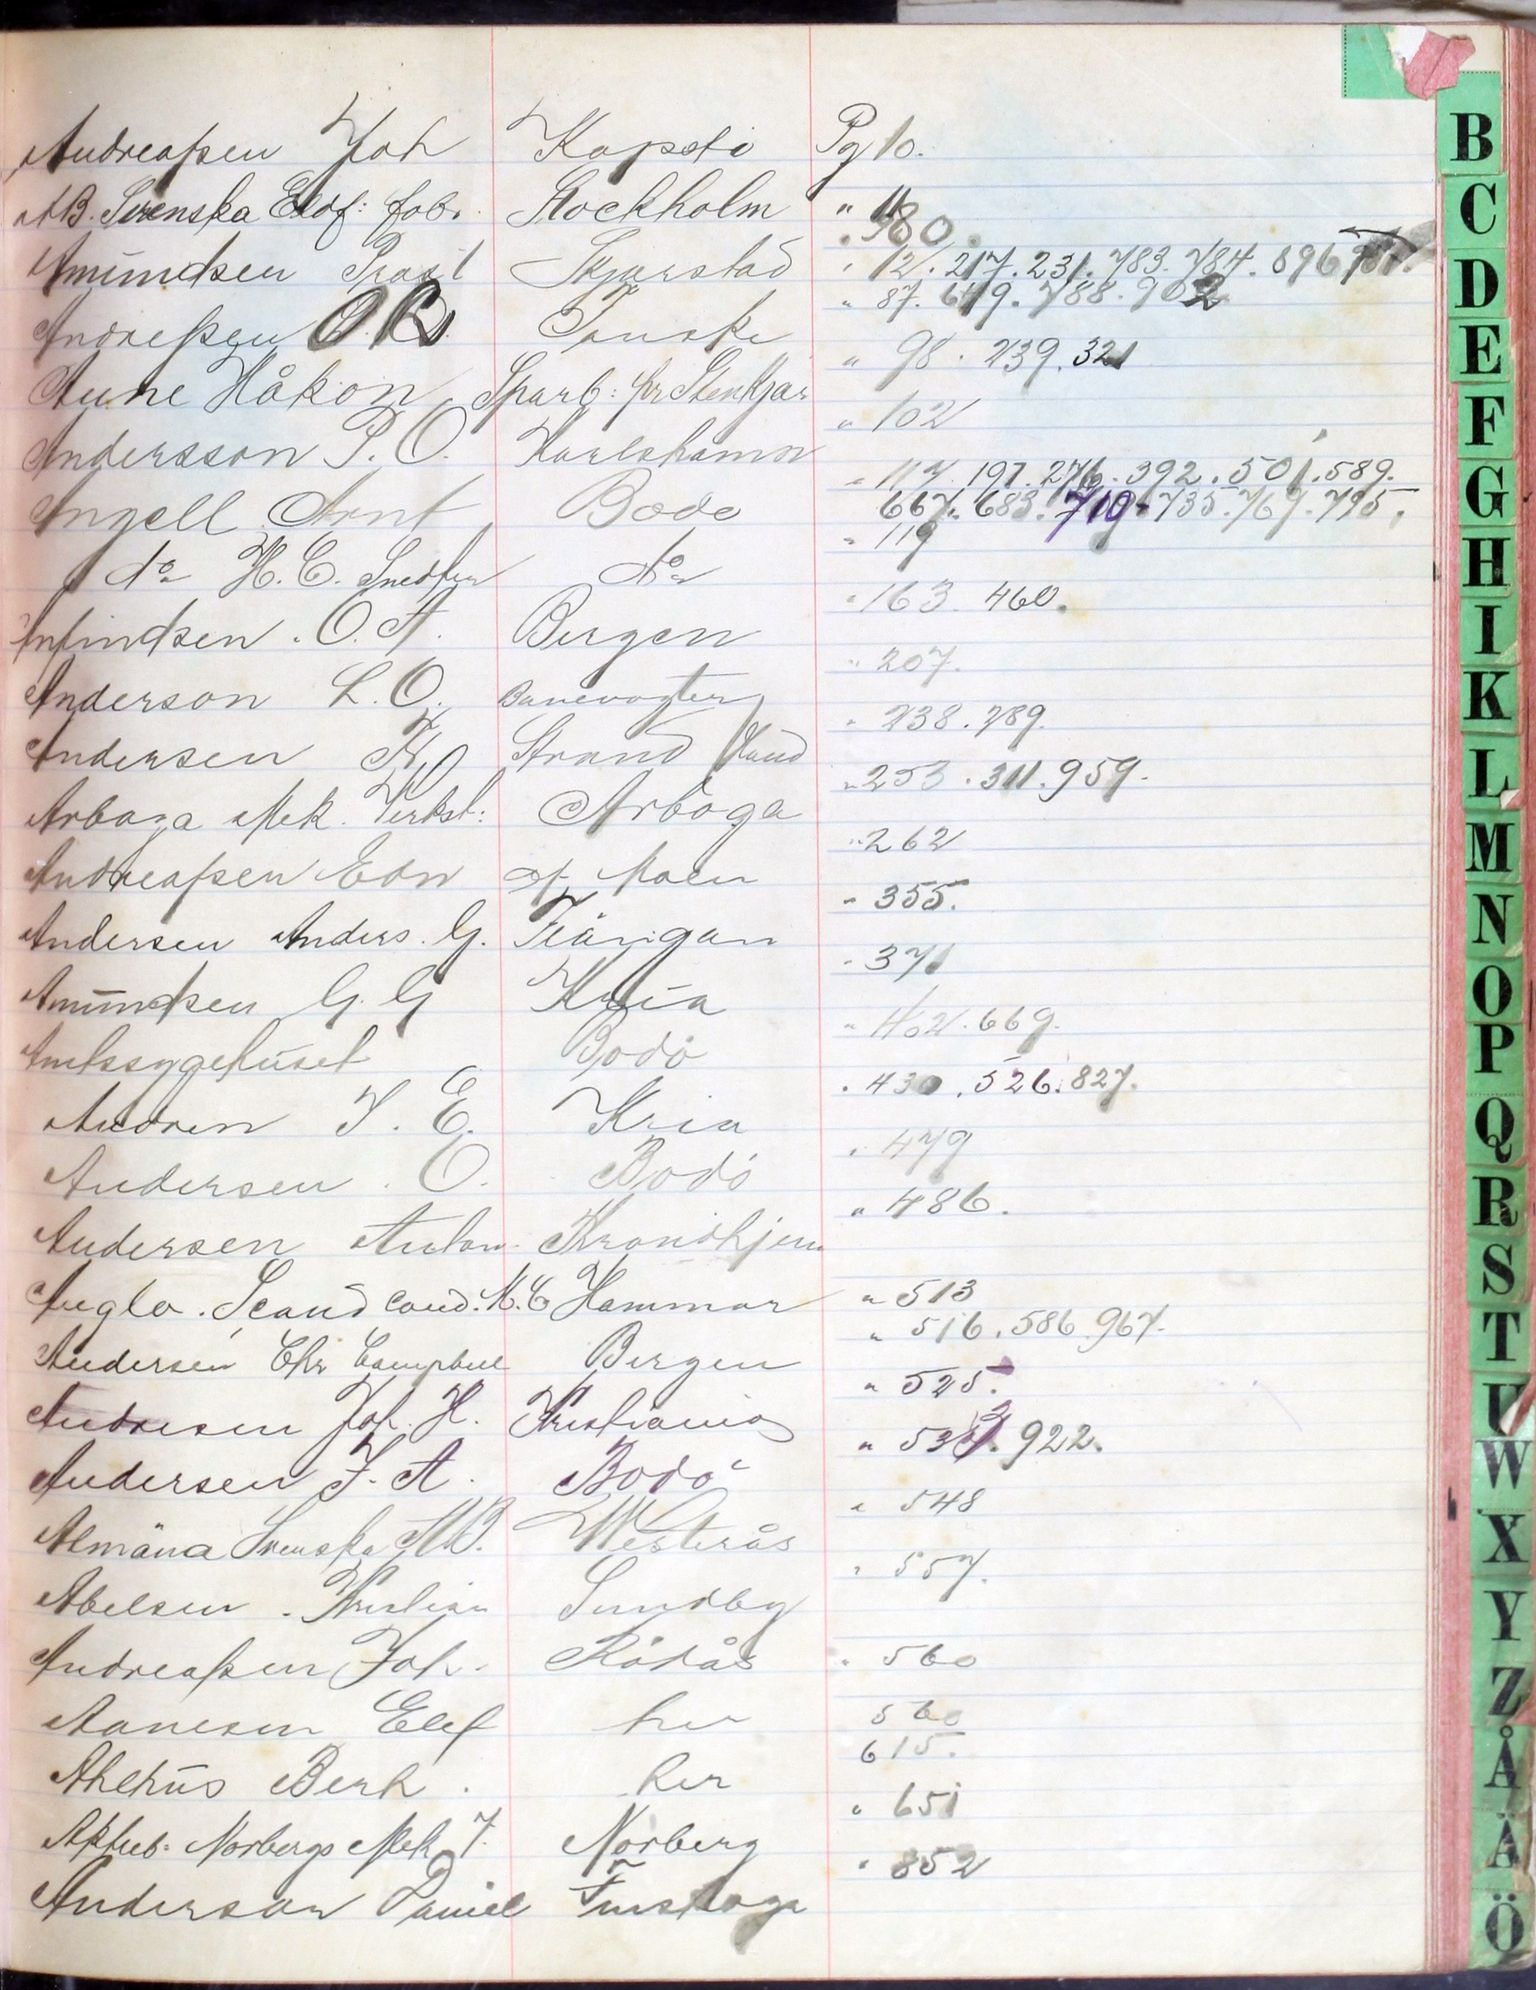 Andreaſsen Joh Kopsdi Pg 10.
AB. Svenska Stockholm " 11
. 380.
Amundsen Prost Skjerstad " 12. 217. 231. 783. 784. 896
" 87. 649. 788. 902
Andreſsen O. Fauske
" 98. 239. 321
Aune Håkon Sparb: pr Stenkjær
" 102
Andersson P. O. Karlshamn
" 117 197. 276. 392. 501. 589.
Angell Arnt Bodö 667. 683. 710. 735. 767. 795.
" 119
do H. C. do
" 163. 460.
O. A. Bergen
" 207.
Anderson L. O. Banevogter
" 238. 789.
Andersen K Strand
" 253. 311. 959.
Arboga Mek. Verkst: Arboga
" 262
Andreaſsen Edv Moen
" 355.
Andersen Anders. G.
" 371
Amundsen G. G Kria
" 402. 669.
Amtssygehuset Bodö
" 430. 526. 827.
Andren J. E. Kria
" 479
Andersen. O. Bodö
" 486.
Andersen Anton Trondhjem
Anglo. Scand Cond. M. C Hammar " 513
" 516. 586. 967.
Andersen Chr Campbell Bergen
" 525.
Andresen Joh. H. Kristiania
" 922.
Andersen J. A. Bodö
" 548
Almäna Svenska AB. Westerås
" 557.
Abelsen. Kristian Sundby
Andreaſsen Joh. Rödås " 560
Aanesen Elef her 560
615.
Berh. her
" 651
Aktieb: Norbergs Mek Norberg
" 852
Anderson Daniel
B
C
D
E
F
G
H
I
K
L
M
N
O
P
Q
R
S
T
U
W
X
Y
Z
Å
Ä
Ö